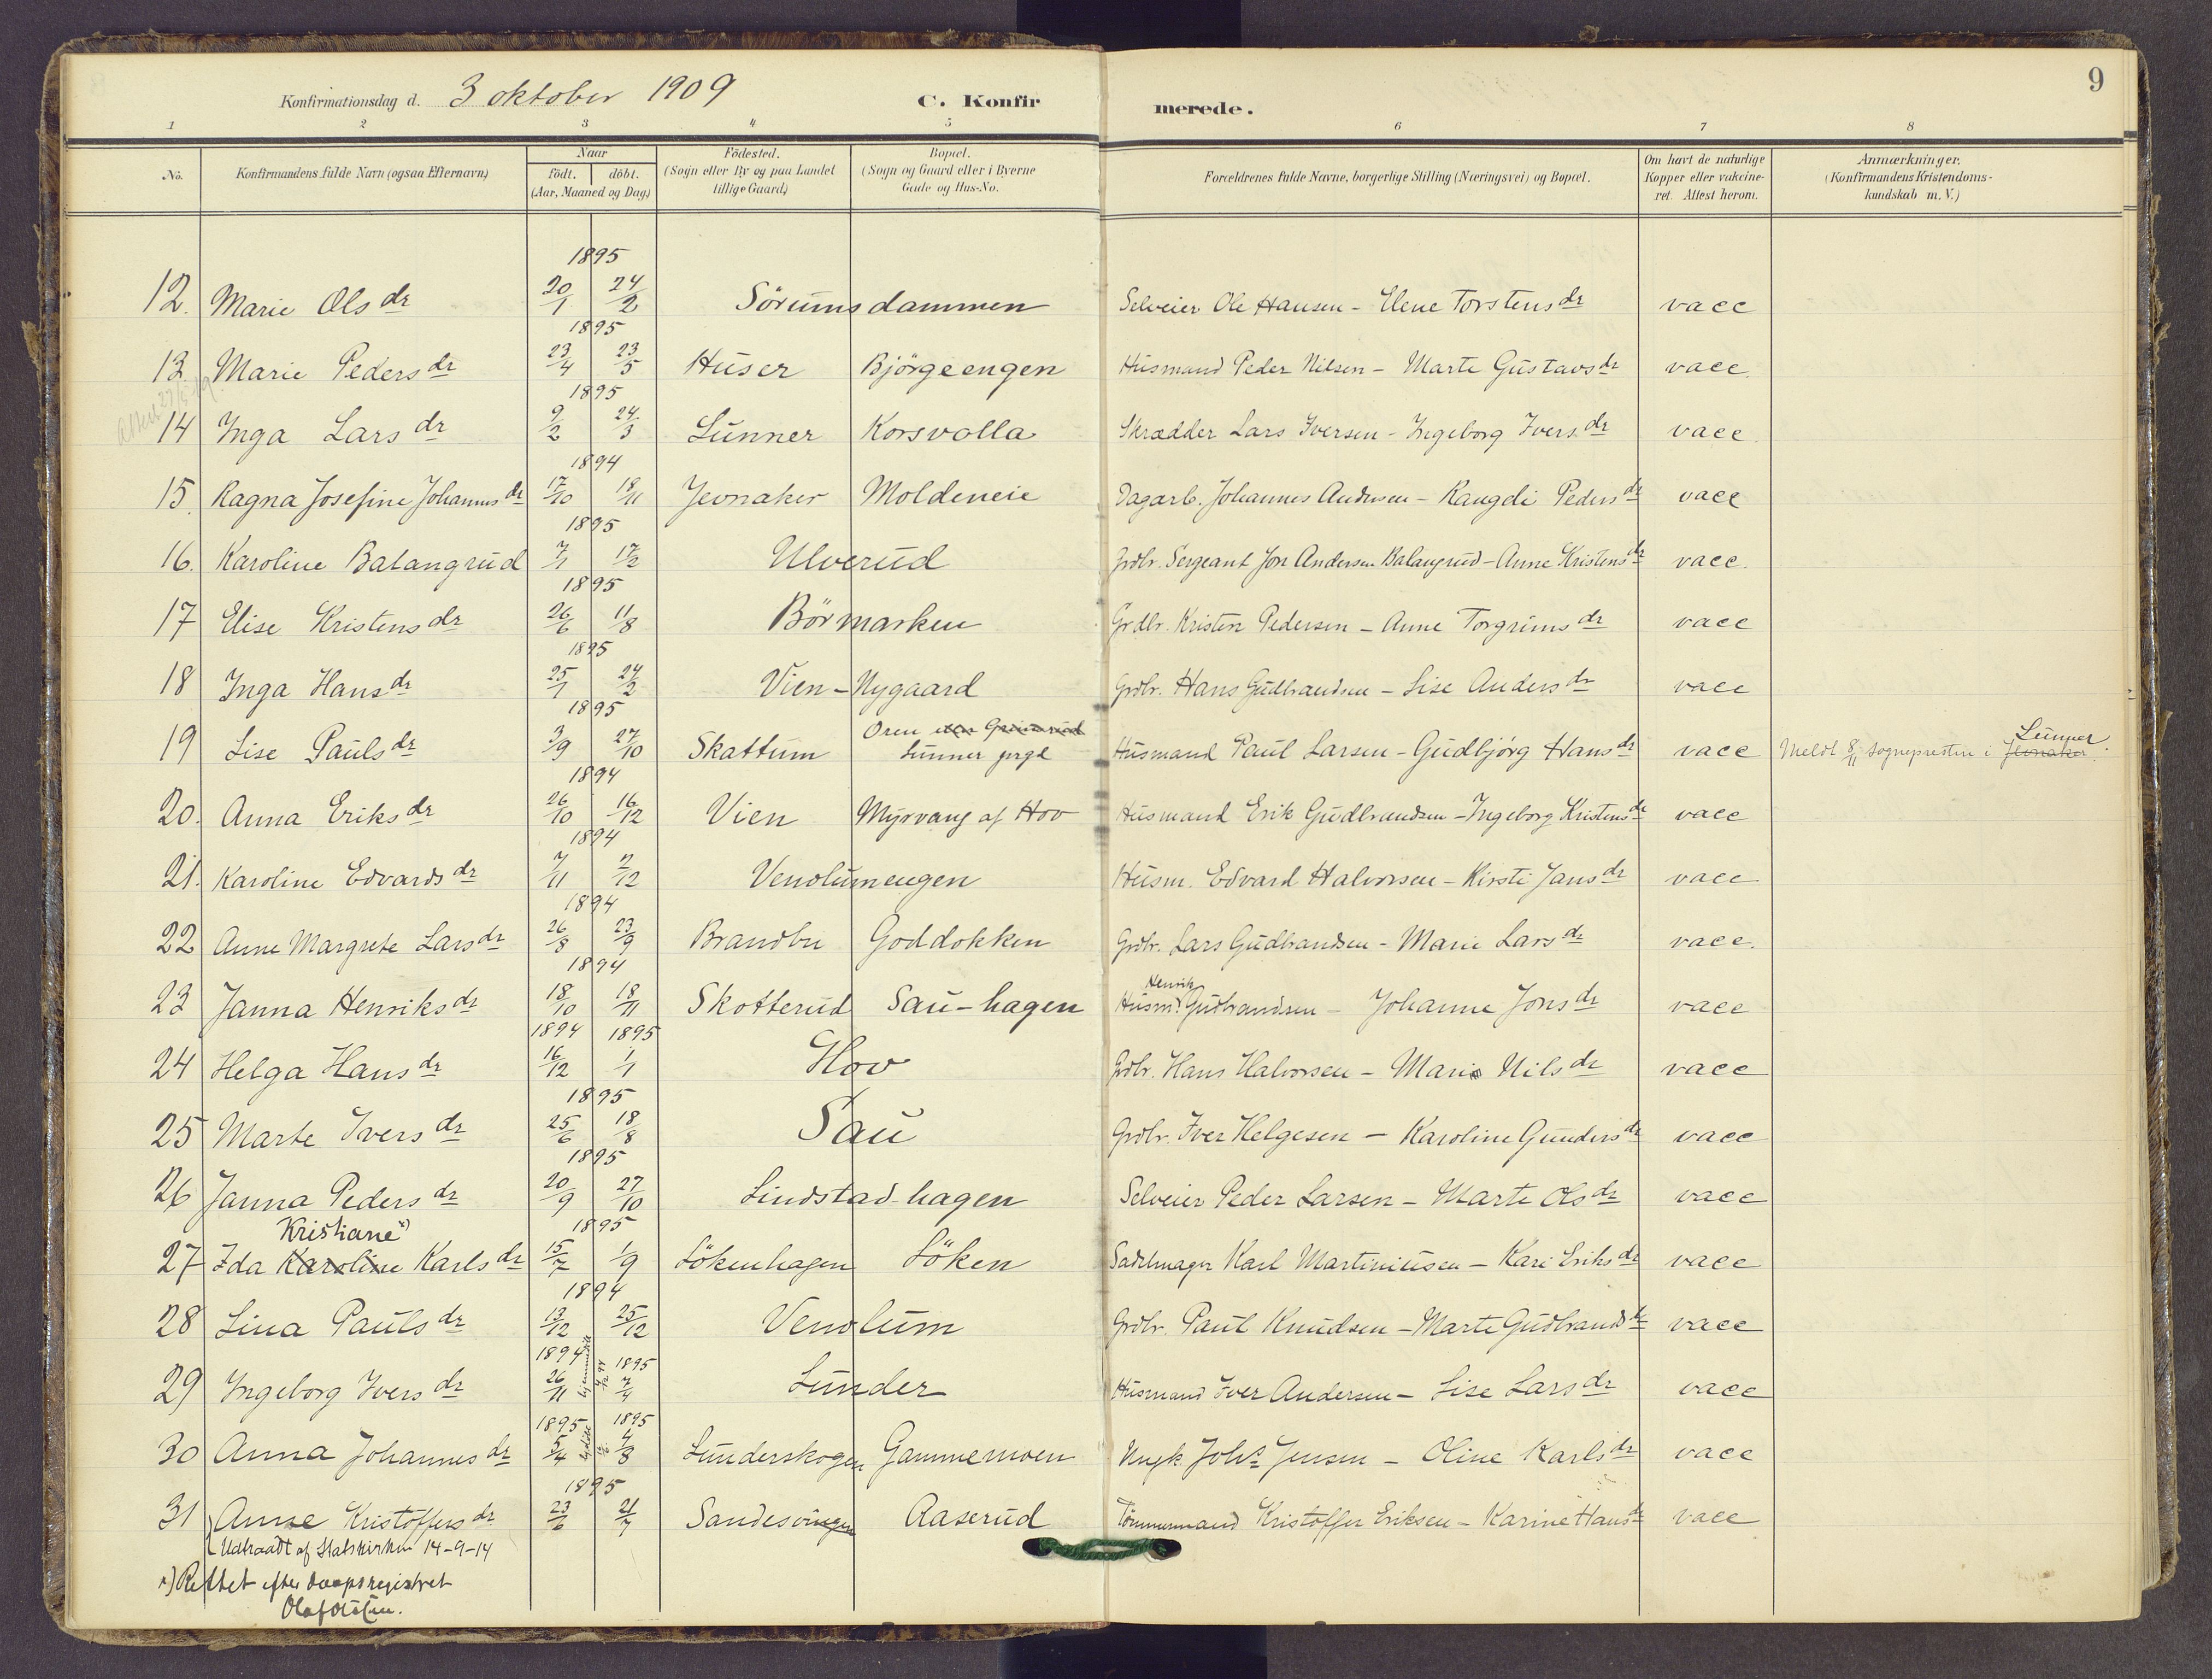 9
Konfirmationsdag d. 3 oktober 1909 C. Konfirmerede.
1 2 3 4 5 6 7 8
No. Konfirmandens fulde Navn (ogsaa Efternavn) Naar födt. döbt. (Aar, Maaned og Dag) Födested. (Sogn eller By og paa Landet tillige Gaard) Bopæl. (Sogn og Gaard eller i Byerne Gade og Hus-No. Forældrenes fulde Navne, borgerlige Stilling (Næringsvei) og Bopæl. Om havt de naturlige Kopper eller vakcineret. Attest herom. Anmærkninger. (Konfirmandens Kristendomskundskab m.V.)
1895
12. Marie Olsdr 20/1 24/2 Sörumsdammen Selveier Ole Hansen - Elene Torstensdr vacc
1895
13 Marie Pedersdr 23/4 23/5 Huser Björgeengen Husmand Peder Nilsen - Marte Gustavsdr vacc.
1895
14 Inga Larsdr 9/2 24/3 Lunner Korsvolla Skrædder Lars Iversen - Ingeborg Iversdr vacc.
1894
15. Ragna Josefine Johannesdr 17/10 18/11 Jevnaker Moldeneie Dagarb. Johannes Andersen - Rangdi Pedersdr vacc
1895
16. Karoline Balangrud 7/1 17/2 Ulverud Grdbr. Sergeant Jon Andersen Balangrud - Anne Kristensdr vacc.
1895
17 Elise Kristensdr 26/6 11/8 Börmarken Grdbr. Kristen Pedersen - Anne Torgrimsdr vacc
1895
18 Inga Hansdr 25/1 24/2 Vien - Nygaard Grdbr. Hans Gudbrandsen - Lise Andersdr vacc
1895
19 Lise Paulsdr 3/9 27/10 Skattum Oren Lunner prgd Husmand Paul Larsen - Gudbjörg Hansdr vacc Meldt 8/11 sognepresten i Jevnaker Lunner.
1894
20. Anna Eriksdr 26/10 16/12 Vien Myrvang af Hov Husmand Erik Gudbrandsen - Ingeborg Kristensdr vacc
1894
21. Karoline Edvardsdr 7/11 2/12 Venolumengen Husm. Edvard Halvorsen - Kirsti Jansdr vacc
1894
22 Anne Margrete Larsdr 26/8 23/9 Brandbu Goddokken Grdbr. Lars Gudbrandsen - Marie Larsdr vacc.
1894
23 Janna Henriksdr 18/10 18/11 Skotterud Sau-hagen Husm. Henrik Gudbrandsen - Johanne Jonsdr vacc
1894 1895
24 Helga Hansdr 16/12 1/1 Hov Grdbr. Hans Halvorsen - Mari Nilsdr vacc
1895
25 Marte Iversdr 25/6 18/8 Sau Grdbr. Iver Helgesen - Karoline Gundersdr vacc
1895
26 Janna Pedersdr 20/9 27/10 Lindstad-hagen Selveier Peder Larsen - Marte Olsdr vacc
Kristiane x) 1895
27 Ida Karoline Karlsdr 15/7 1/9 Lökenhagen Löken Sadelmager Karl Martiniusen - Kari Eriksdr vacc
1894
28 Lina Paulsdr 13/12 25/12 Venolum Grdbr. Paul Knudsen - Marte Gudbrandsdr vacc
1894 1895
29 Ingeborg Iversdr 26/11 7/4 Lunder Husmand Iver Andersen - Lise Larsdr vacc
1895 1895
30 Anna Johannesdr 5/4 4/8 Lunderskogen Gammemoen Johs Jensen - Oline Karlsdr vacc
1895
31 Anne Kristoffersdr 23/6 21/7 Sandesvingen Aaserud Tömmermand Kristoffer Eriksen - Karine Hansdr vacc
Udtraadt af Statskirken 14-9-14
x) Rettet efter daapsregistret
Olaf Olafsen.